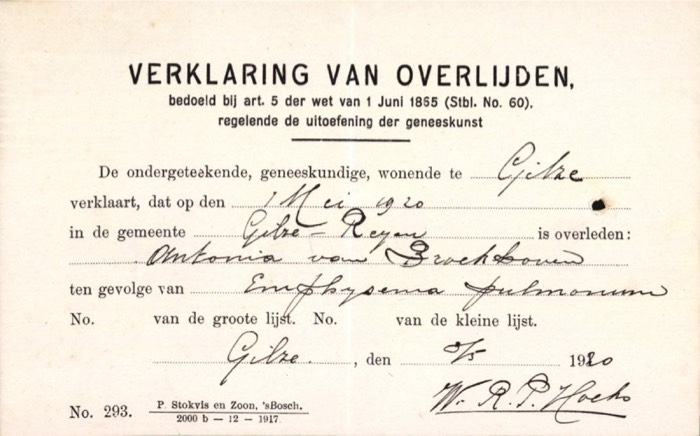 VERKLARING VAN OVERLIJDEN,
bedoeld bij art. 5 der wet van 1 Juni 1865 (Stbl. No. 60),
regelende de uitoefening der geneeskunst
De ondergeteekende, geneeskundige, wonende te Gilze
verklaart, dat op den 1 Mei 1920
in de gemeente Gilze-Reyen is overleden:
Antonia van Broekhoven
ten gevolge van Emphysema pulmonum
No. van de groote lijst. No. van de kleine lijst.
Gilze., den 2/5 1920
W. R. P.
No. 293. P. Stokvis en Zoon, 'sBosch.
2000 b — 12 — 1917.